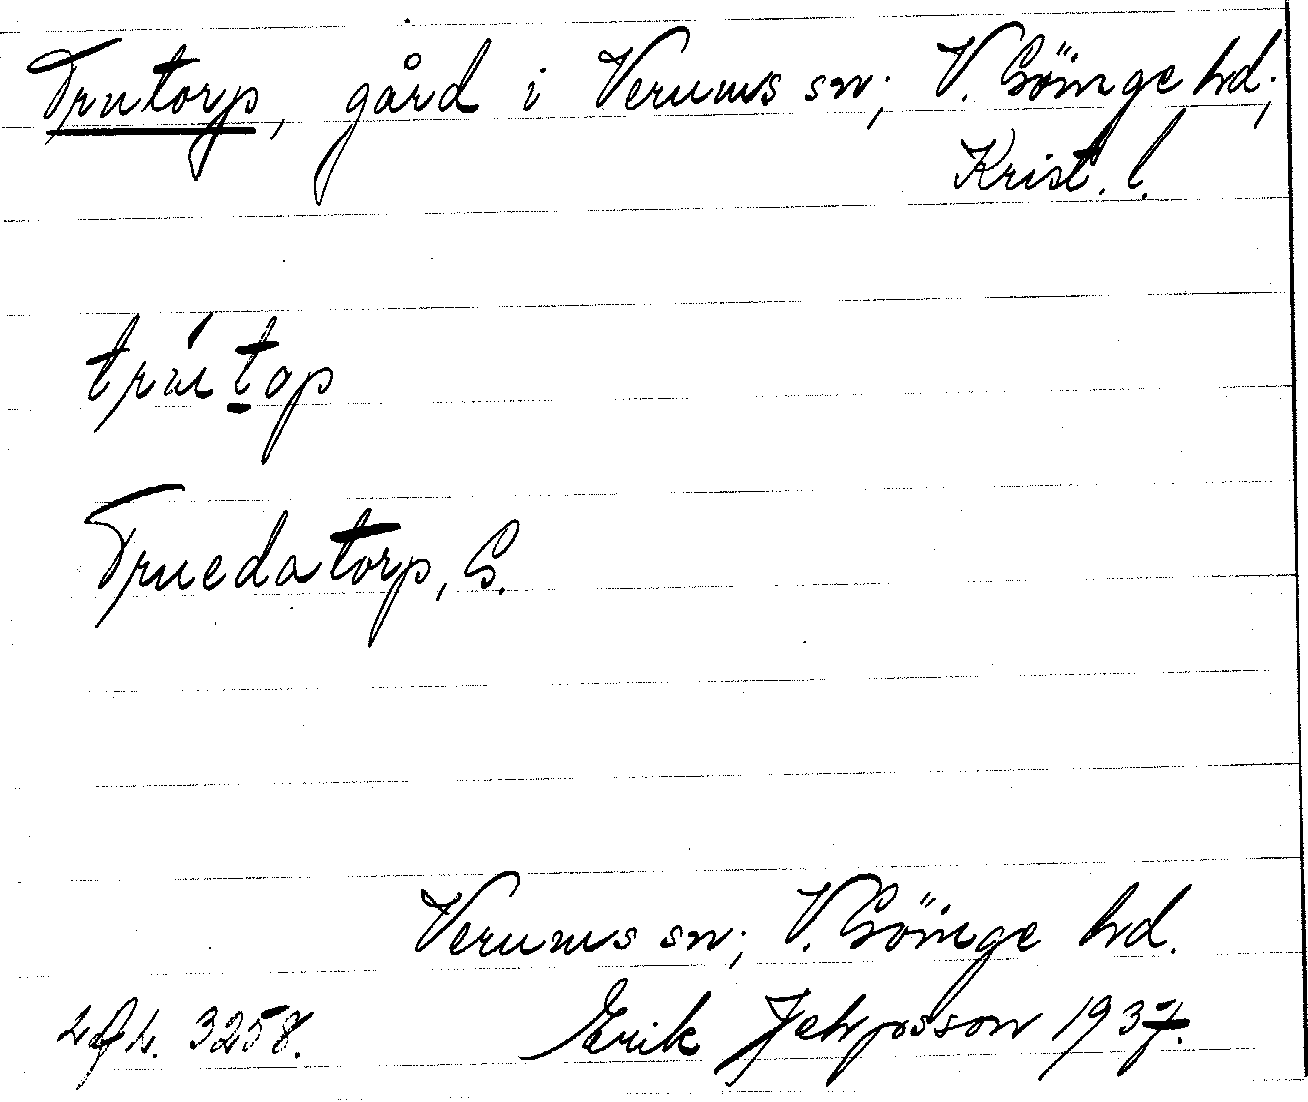 Trutorp, gård i Verums sn; V. Göinge hd;
Krist. l.
trútop
Truedatorp, G.
Verums sn; V. Göinge hd.
3258.
Erik Jeppsson 1937.